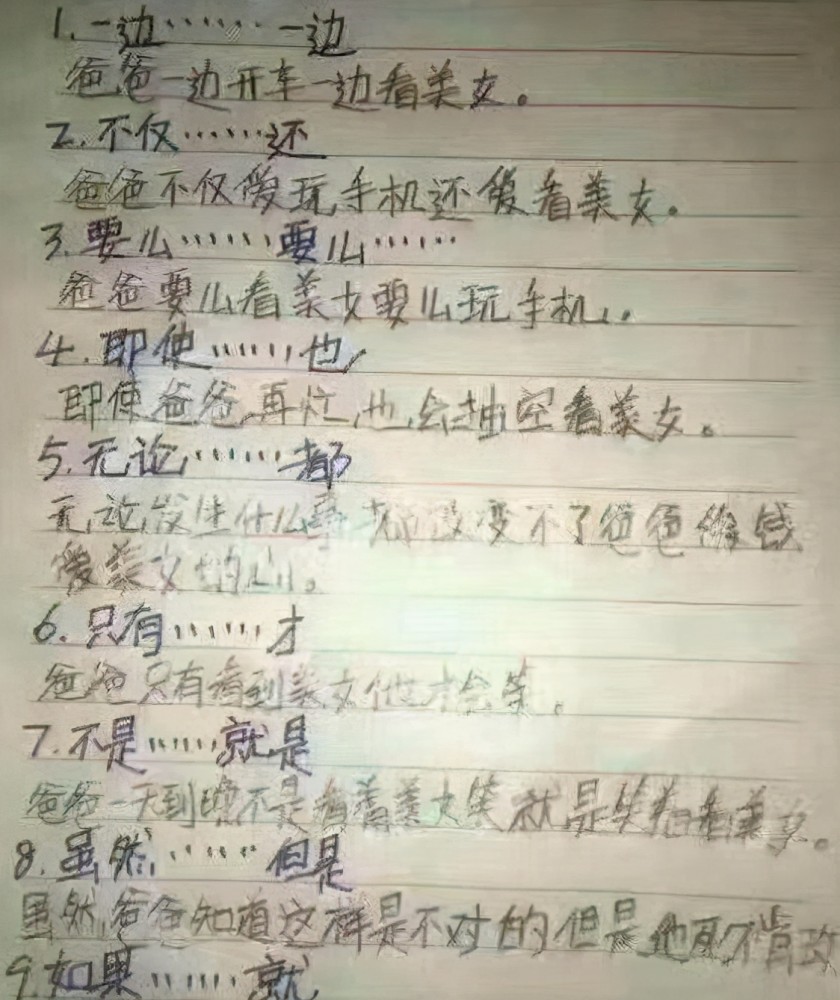 1.一边……一边
爸爸一边开车一边看美女。
2.不仅……还
爸爸不仅爱玩手机还爱看美女。
3.要么……要么……
爸爸要么看美女要么玩手机。
4.即使……也
即使爸爸再忙,也会抽空看美女。
5.无论……都
无论发生什么事都改变不了爸爸
爱美女的心。
6.只有……才
爸爸只有看到美女他才会笑。
7.不是……就是
爸爸一天到晚不是看着美女笑就是笑着看美女。
8.虽然……但是
虽然爸爸知道这样是不对的但是他又不肯改
9.如果……就